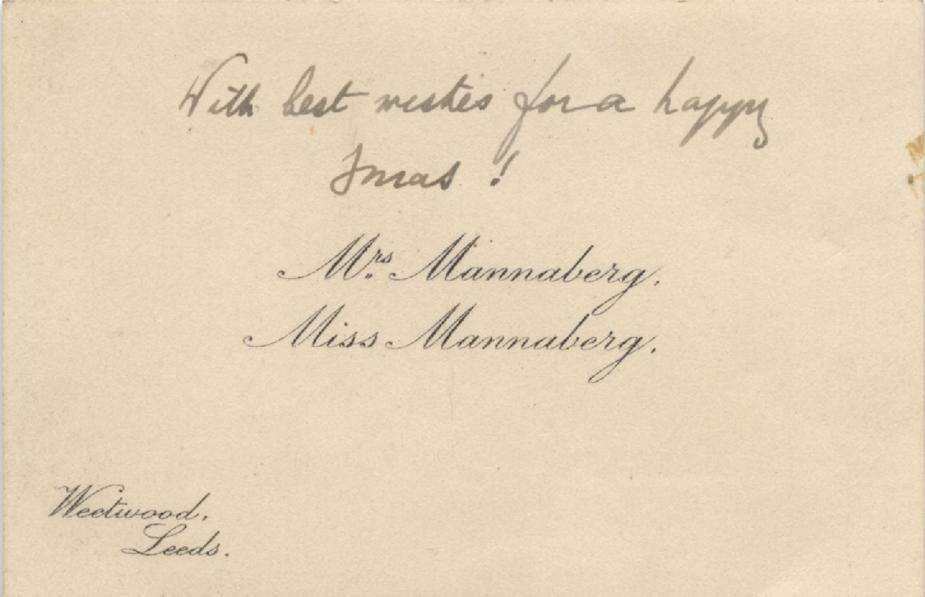 With best wishes for a happy
Xmas !
Mrs Mannaberg.
Miss Mannaberg.
Weetwood.
Leeds.